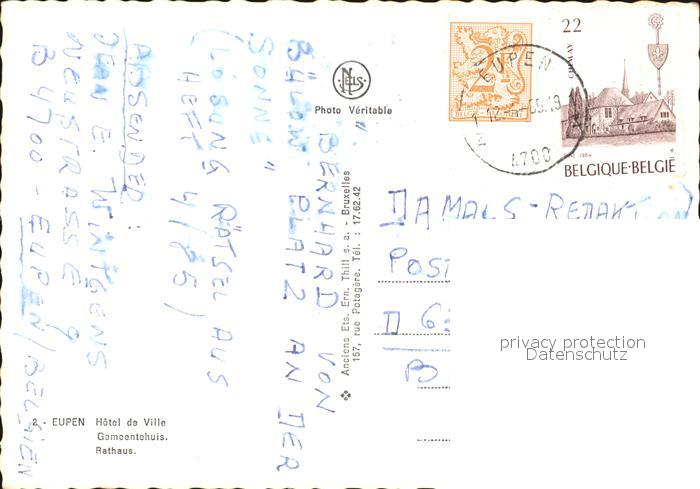 ABSENDER:
JEAN E. WINTGENS
NEUSTRASSE 9
B 4700 - EUPEN/BELGIEN
"BERNHARD VON
BÜLOW: PLATZ AN DER
SONNE"
(LÖSUNG RÄTSEL AUS
HEFT 4/85)
NELS
Photo Véritable
Anciens Ets. Ern. Thill s. a. - Bruxelles
157, rue Potagère. Tél. : 17.62.42
2 - EUPEN Hôtel de Ville
Gemeentehuis.
Rathaus.
EUPEN
4700
22
CHIMAY
BELGIQUE·BELGIË
DAMALS-REDAKT
POST
D 6
B
privacy protection
Datenschutz